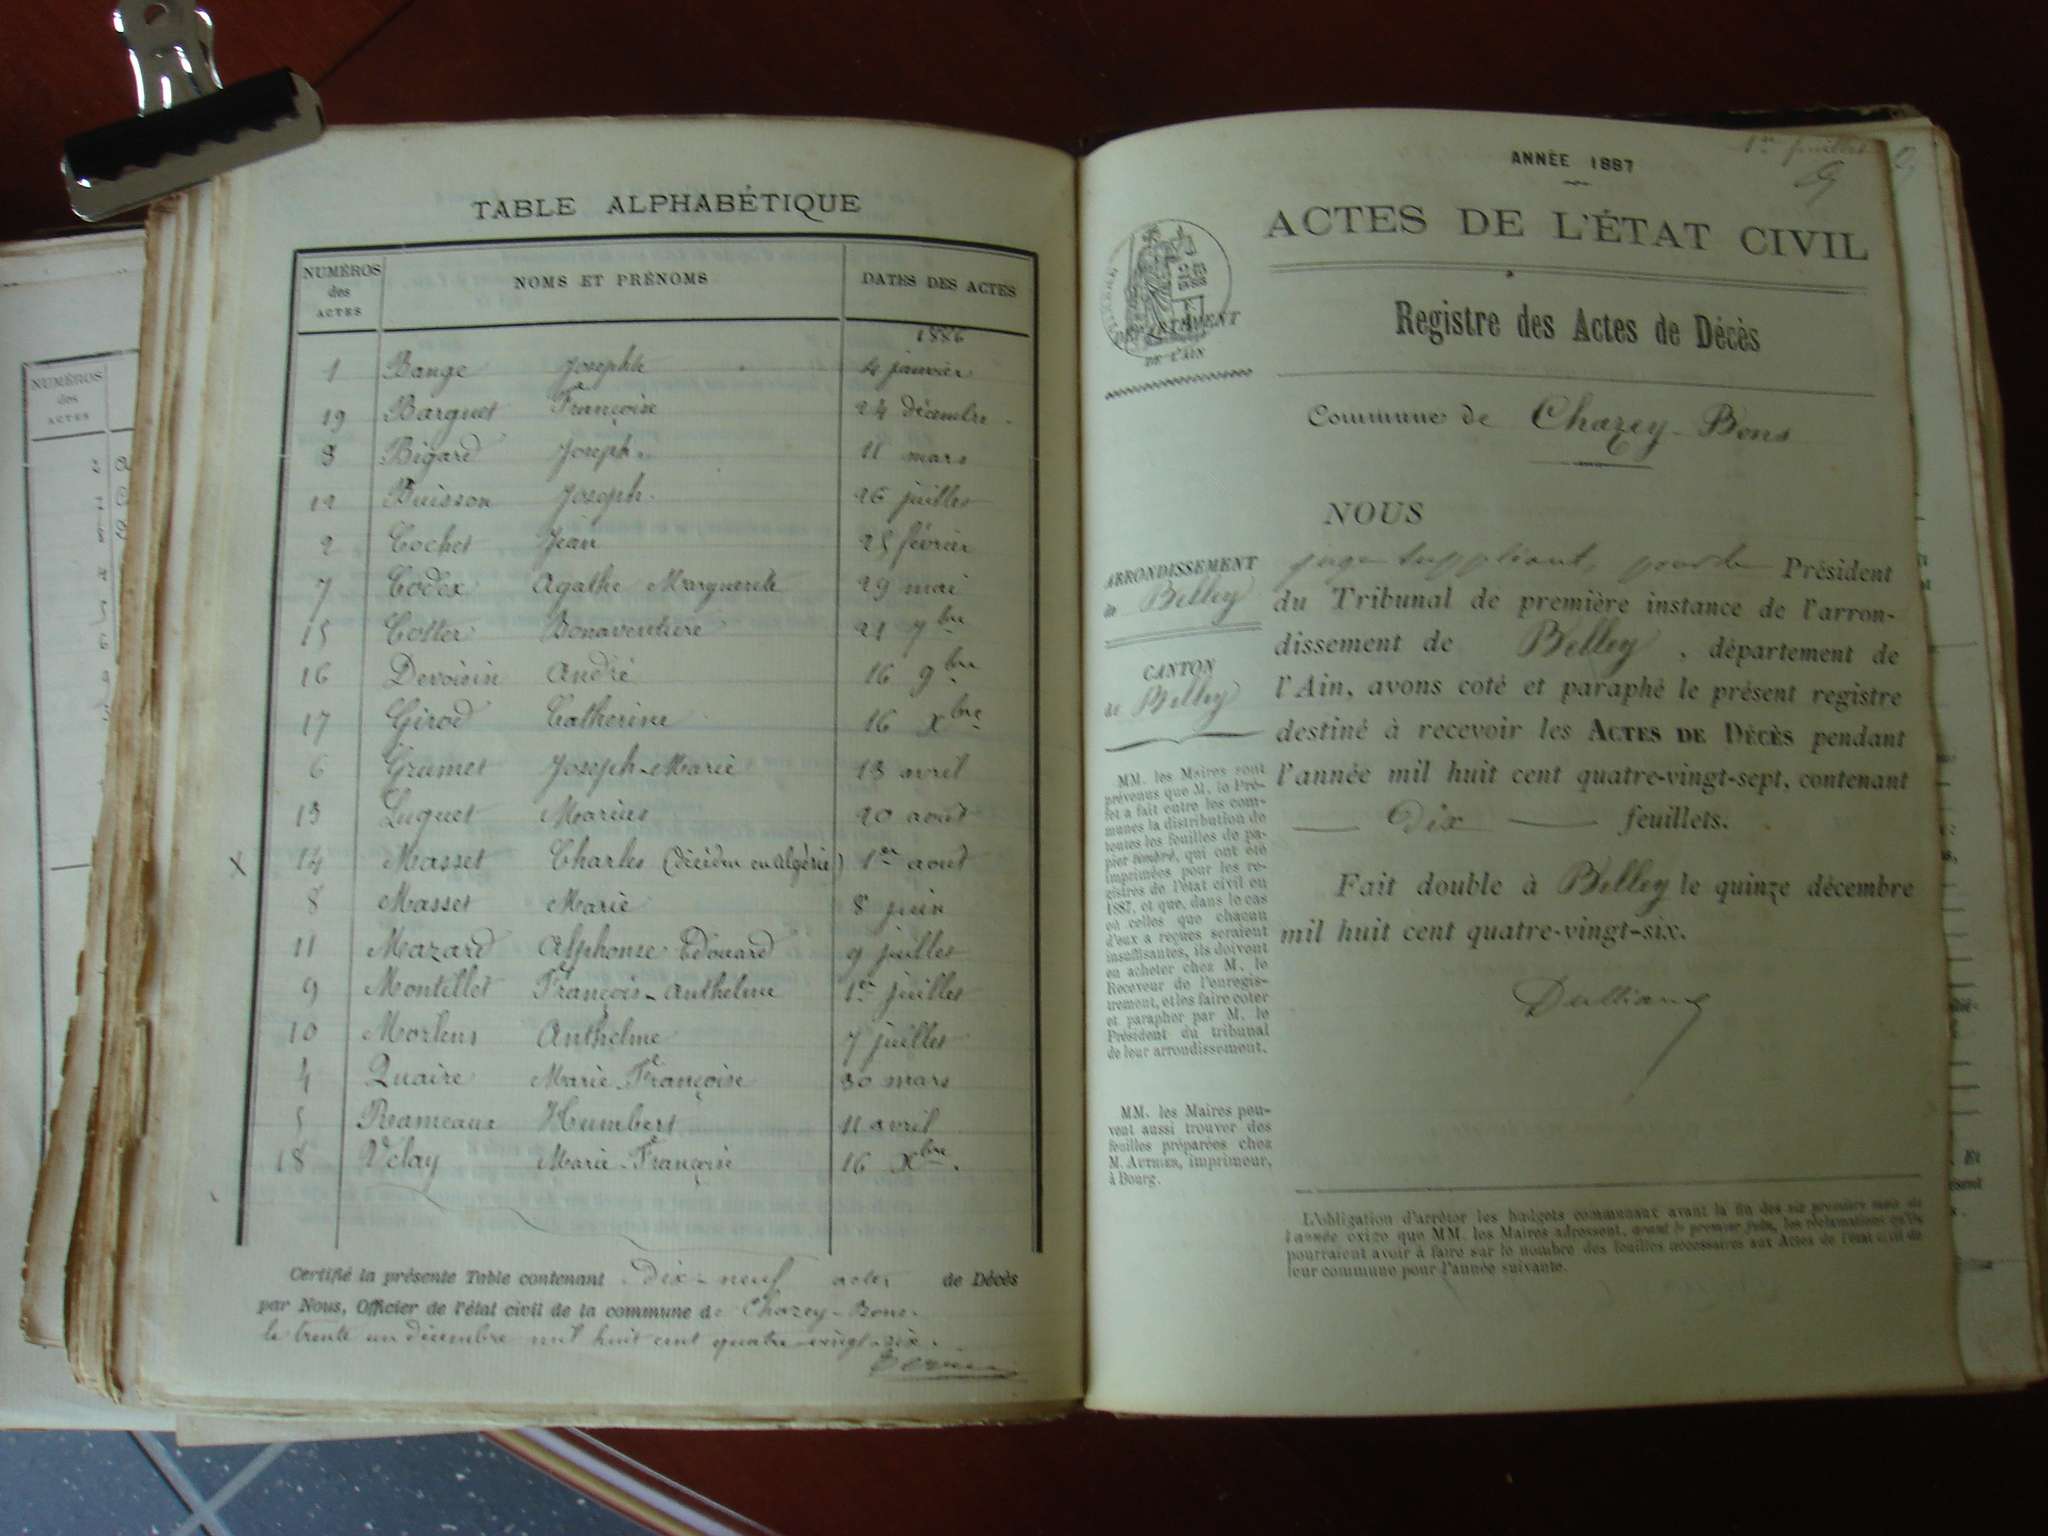 TABLE ALPHABÉTIQUE
NUMÉROS des ACTES NOMS ET PRÉNOMS DATES DES ACTES
1886
1 Bange Josephte 4 janvier
19 Barquet Fçoise 24 décembre
3 Bigard Joseph. 11 mars
12 Buisson Joseph. 26 juillet
2 Cochet Jean 25 février
7 Codex Agathe Marguerite 29 mai
15 Cottet Bonaventure 21 7bre
16 Devoisin André 16 9bre
17 Girod Catherine 16 Xbre
6 Grumet Joseph-Marie 13 avril
13 Luquet Marius 20 août
X 14 Masset Charles (décidu en Algérie) 1er août
8 Masset Marie 8 juin
11 Mazard Alphonse Edouard 9 juillet
9 Montillet François-Anthelme 1er juillet
10 Mortens Anthelme 7 juillet
4 Quaire Marie-Françoise 30 mars
5 Rameaux Humbert 11 avril
18 Velay Marie-Françoise 16 Xbre.
Certifié la présente Table contenant Dix-neuf actes de Décès
par Nous, Officier de l'état civil de la commune de Chazey-Bons.
le trente un décembre mil huit cent quatre-vingt-six.
NUMÉROS
des
ACTES
1er juillet
ANNÉE 1887
ACTES DE L'ÉTAT CIVIL
DÉPARTEMENT
DE L'AIN
Registre des Actes de Décès
Commune de Chazey-Bons
NOUS
juge suppléant, pour le Président
du Tribunal de première instance de l'arron-
dissement de Belley, département de
l'Ain, avons coté et paraphé le présent registre
destiné à recevoir les ACTES DE DÉCÈS pendant
l'année mil huit cent quatre-vingt-sept, contenant
— Dix — feuillets.
Fait double à Belley le quinze décembre
mil huit cent quatre-vingt-six.
ARRONDISSEMENT
de Belley
CANTON
de Belley
MM. les Maires sont
prévenus que M. le Pré-
fet a fait entre les com-
munes la distribution de
toutes les feuilles de pa-
pier timbré, qui ont été
imprimées pour les re-
gistres de l'état civil en
1887, et que, dans le cas
où celles que chacun
d'eux a reçues seraient
insuffisantes, ils doivent
en acheter chez M. le
Receveur de l'enregis-
trement, et les faire coter
et parapher par M. le
Président du tribunal
de leur arrondissement.
MM. les Maires peu-
vent aussi trouver des
feuilles préparées chez
M. AUTHIER, imprimeur,
à Bourg.
L'obligation d'arrêter les budgets communaux avant la fin des six premiers mois de
l'année exige que MM. les Maires adressent, avant le premier juin, les réclamations qu'ils
pourraient avoir à faire sur le nombre des feuilles nécessaires aux Actes de l'état civil de
leur commune pour l'année suivante.